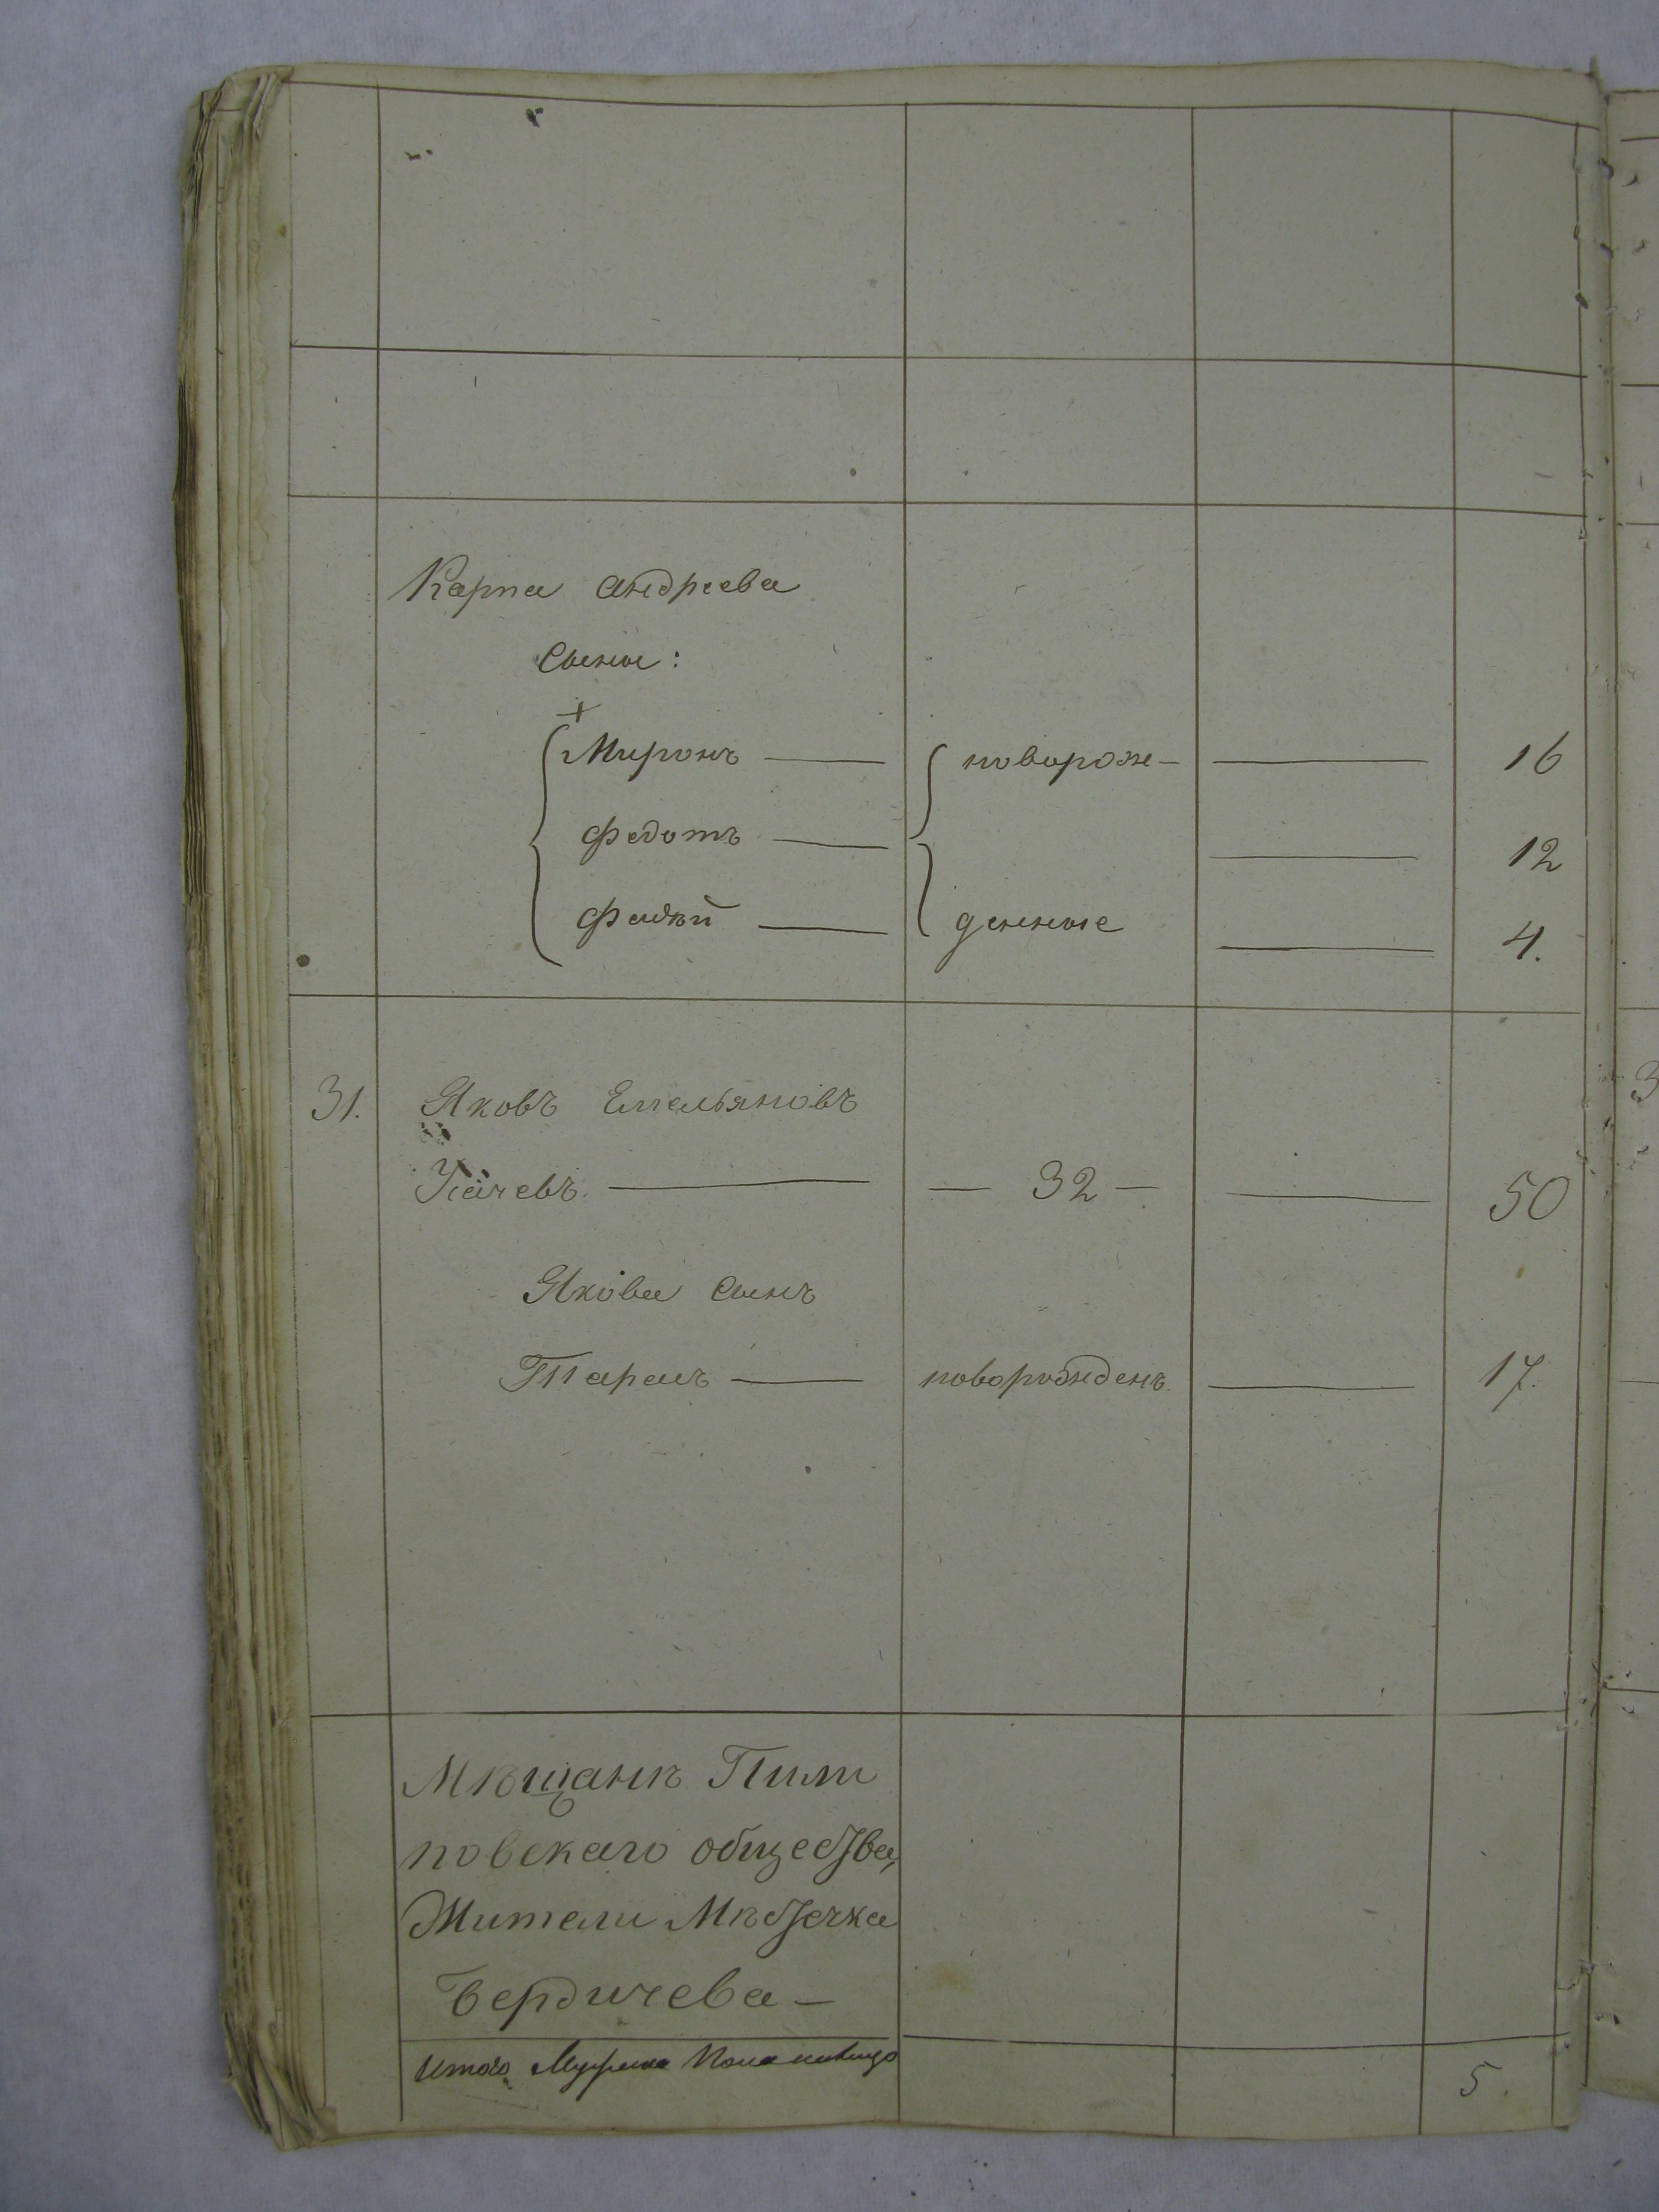 Карпа Андреева
Сыны:
+
Миронъ — новорож- — 16
Федотъ — — 12
Фадѣй — денные — 4.
31. Яковъ Емельяновъ
— 32 — — 50
Якова Сынъ
Тарасъ — новорожденъ. — 17.
Мѣщанъ Пили
повскаго общества,
Жители Мѣстечка
Бердичева —
Итого Мужеска Пола наличнаго 5.